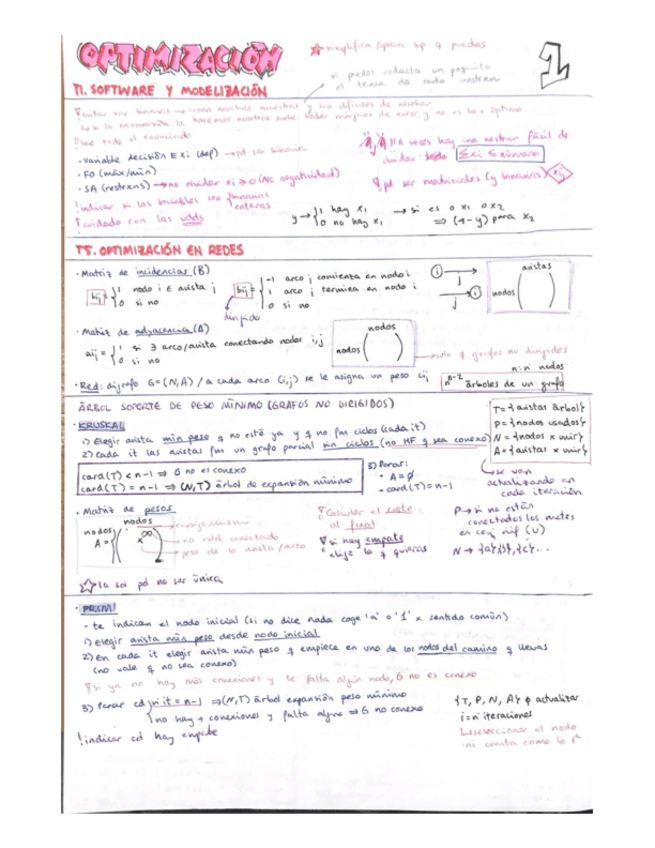 OPTIMIZACIÓN
1
☆ simplifica siempre q puedas
si puedes redacta un poquito
el tema de cada restricn
T1. SOFTWARE Y MODELIZACIÓN
Lee todo el enunciado
· variable decisión ∈ xi (dep) → pd ser binaria
· FO (máx/min)
· SA (restrxns) → no olvidar xi ≥ 0 (No negatividad)
! indicar si las variables son binarias
enteras
! cuidado con las udds
A veces hay una restrxn fácil de
olvidar: Σxi ≤ número
pd ser matriciales (y binarias) xij
y → { 1 hay x1
0 no hay x1
→ si es o x1 o x2
⇒ (1-y) para x2
T5. OPTIMIZACIÓN EN REDES
· Matriz de incidencias (B)
bij = { 1 nodo i ∈ arista j
0 si no
bij = { -1 arco j comienza en nodo i
1 arco j termina en nodo i
0 si no
dirigido
i → j
j → i
aristas
nodos ( )
· Matriz de adyacencia (A)
aij = { 1 si ∃ arco/arista conectando nodos i,j
0 si no
nodos
nodos ( )
→ solo q grafos no dirigidos
n: nº nodos
· Red: dígrafo G=(N,A) / a cada arco (i,j) se le asigna un peso cij
n^n-2 árboles de un grafo
ÁRBOL SOPORTE DE PESO MÍNIMO (GRAFOS NO DIRIGIDOS)
· KRUSKAL
1) Elegir arista mín peso q no esté ya y q no fm ciclos (cada it)
2) cada it las aristas fm un grafo parcial sin ciclos (no HF q sea conexo)
T = {aristas árbol}
P = {nodos usados}
N = {nodos x unir}
A = {aristas x unir}
→ se van
actualizando en
cada iteración
card(T) < n-1 ⇒ G no es conexo
card(T) = n-1 ⇒ (N,T) árbol de expansión mínimo
3) Parar:
· A = ∅
- card(T) = n-1
P → si no están
conectados los metes
en conj dif (U)
N → {a}{b},{c}...
· Matriz de pesos
nodos
nodos
A = ( ∞ x )
→ no está conectado
→ peso de la arista/arco
! Calcular el coste
al final
! si hay empate
elige la q quieras
☆ la sol pd no ser única
· PRIM
- te indican el nodo inicial (si no dice nada coge 'a' o '1' x sentido común)
1) elegir arista mín peso desde nodo inicial
2) En cada it elegir arista mín peso q empiece en uno de los nodos del camino q llevas
(no vale q no sea conexo)
! si ya no hay más conexiones y te falta algún nodo, G no es conexo
3) Parar cd { nº it = n-1 ⇒ (N,T) árbol expansión peso mínimo
no hay + conexiones y falta alguno ⇒ G no conexo
! indicar cd hay empate
{T, P, N, A} q actualizar
i = nº iteraciones
↳ seleccionar el nodo
ini cuenta como la 1ª